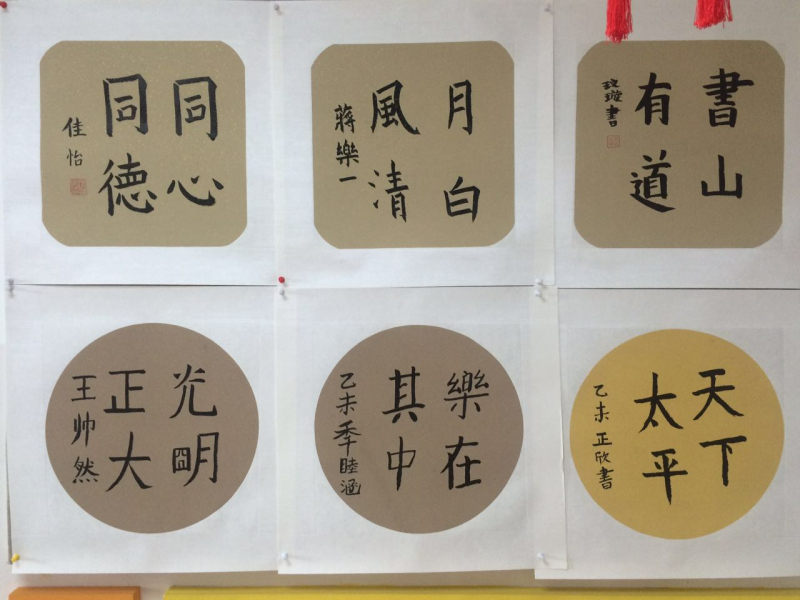 同心
同德
佳怡
月白
風清
蔣樂一
書山
有道
玟璇書
光朙
正大
王帅然
樂在
其中
乙未秊睦涵
天下
太平
乙未 正欣書